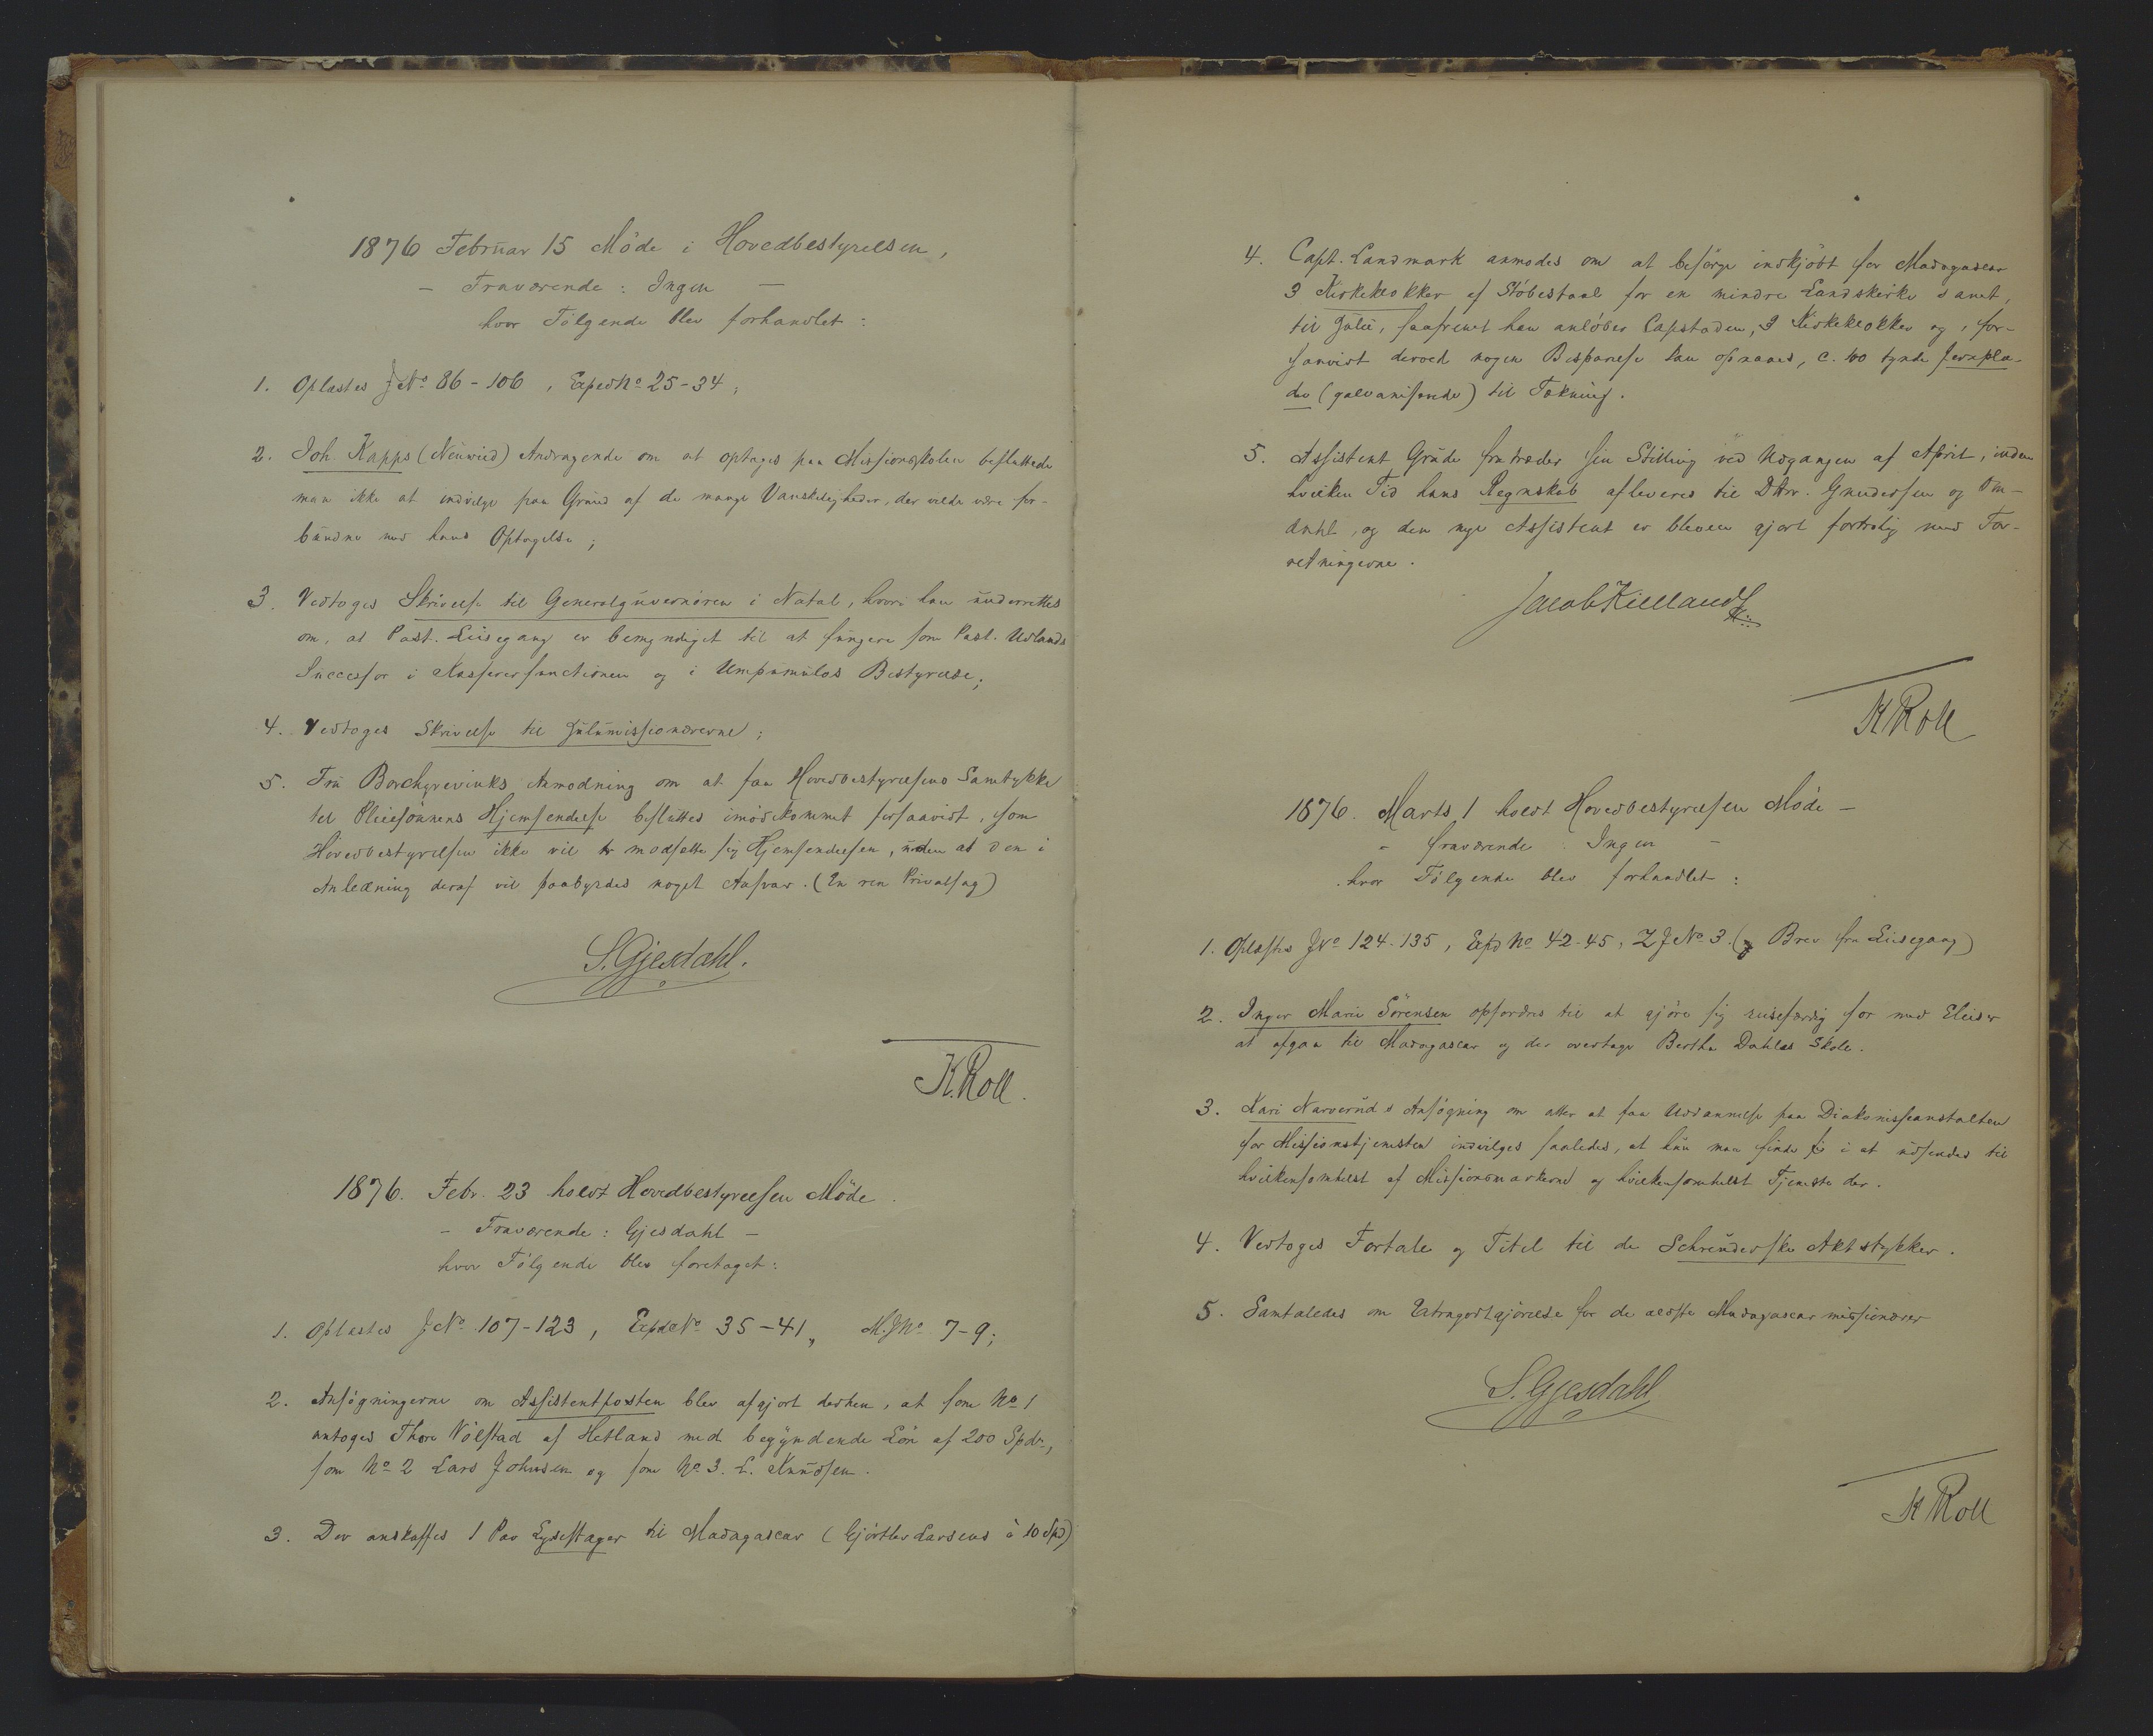 1876 Februar 15 Möde i Hovedbestyrelsen,
- Fraværende: Ingen -
hvor Fölgende blev forhandlet:
1. Oplæstes JNo 86-106, Exped No 25-34;
2. Joh. Kapps (Neuwied) Andragende om at optages paa Missionsskolen besluttede
man ikke at indvilge paa Grund af de mange Vanskeligheder, der vilde være for-
bundne med hans Optagelse;
3. Vedtoges Skrivelse til Generalguvernören i Natal, hvori han underrettes
om, at Past. Leisegang er bemyndiget til at fungere som Past. Udlands
Successor i Kassererfunctionen og i Umpumulos Bestyrelse;
4. Vedtoges Skrivelse til Zulumissionærerne;
5. Fru Borchgrevinks Anmodning om at faa Hovedbestyrelsens Samtykke
til Pleiesönnens Hjemsendelse besluttes imödekommet forsaavidt, som
Hovedbestyrelsen ikke vil modsætte sig Hjemsendelsen, uden at den i
Anledning deraf vil paabyrdes noget Ansvar. (En ren Privatsag)
S. Gjesdahl.
K. Roll.
1876. Febr. 23 holdt Hovedbestyrelsen Möde.
- Fraværende: Gjesdahl -
hvor Fölgende blev foretaget:
1. Oplæstes JNo 107-123, Exped No 35-41, M.JNo 7-9;
2. Ansögningerne om Assistentposten blev afgjort derhen, at som No 1
antoges Thore Völstad af Hetland med begyndende Lön af 200 Spdr,
som No 2 Lars Johnsen og som No 3. L. Knudsen.
3. Der anskaffes 1 Par Lysestager til Madagascar (Gjörtler Larsens à 10 Spd)
4. Capt. Landmark anmodes om at besörge indkjöbt for Madagascar
3 Kirkeklokker af Stöbestaal for en mindre Landskirke samt,
til Zulu, saafremt han anlöber Capstaden, 3 Kirkeklokker og, for-
saavidt derved nogen Besparelse kan opnaaes, c. 100 tynde Jernpla-
der (galvaniserede) til Tækning.
5. Assistent Grude fratræder sin Stilling ved Udgangen af April, inden
hvilken Tid hans Regnskab afleveres til DHrr. Gundersen og Om-
dahl, og den nye Assistent er bleven gjort fortrolig med For-
retningerne.
Jacob Kielland
K Roll
1876. Marts 1 holdt Hovedbestyrelsen Möde -
- fraværende: Ingen -
hvor Fölgende blev forhandlet:
1. Oplæstes JNo 124-135, Expd No 42-45, ZJNo 3. (Brev fra Leisegang)
2. Inger Marie Sörensen opfordres til at gjöre sig reisefærdig for med Elieser
at afgaa til Madagascar og der overtage Berthe Dahles Skole.
3. Kari Narveruds Ansögning om atter at faa Uddannelse paa Diakonisseanstalten
for Missionstjenesten indvilges saaledes, at hun maa finde sig i at udsendes til
hvilkensomhelst af Missionsmarkerne og hvilkensomhelst Tjeneste der.
4. Vedtoges Fortale og Titel til de Schreuderske Aktstykker.
5. Samtaledes om Extragodtgjörelse for de ældste Madagascarmissionærer
S. Gjesdahl
K Roll